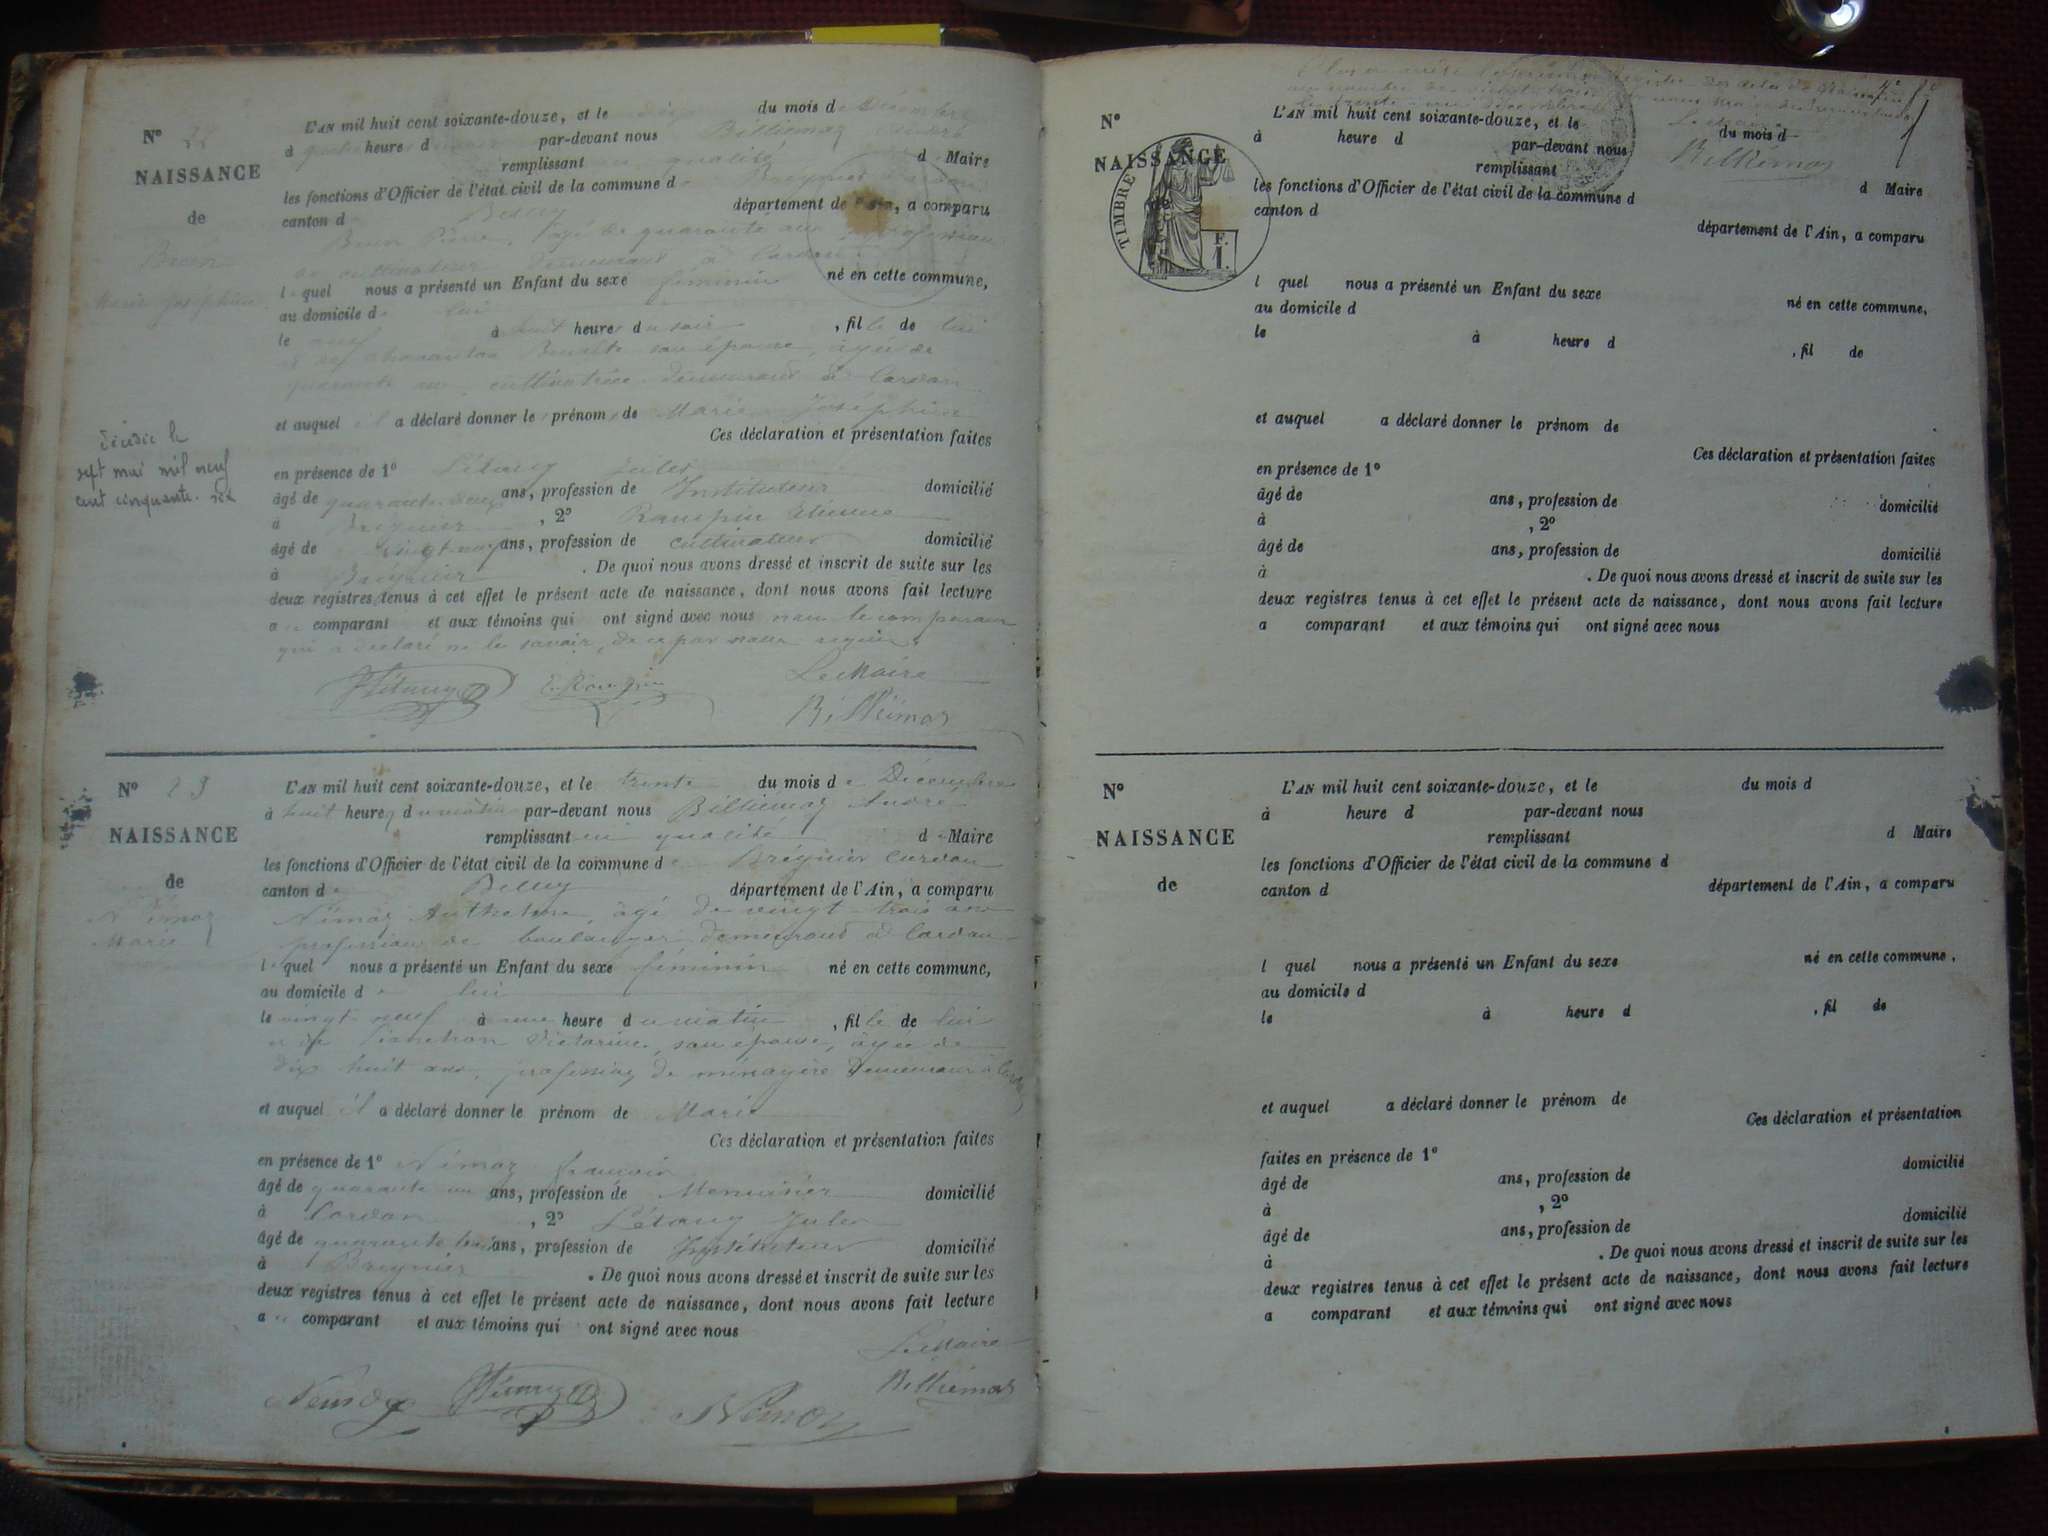 N° 22
NAISSANCE
de
Marie Joséphine
L'AN mil huit cent soixante-douze, et le du mois de Décembre
à heure d par-devant nous Billiemaz André
remplissant en qualité d Maire
les fonctions d'Officier de l'état civil de la commune de Brégnier
canton de Belley département de l'Ain, a comparu
âgé de quarante ans profession
de cultivateur demeurant à Cordon
lequel nous a présenté un Enfant du sexe féminin né en cette commune,
au domicile de lui
le à huit heures du soir, fille de lui
et de Benoîte son épouse, âgée de
quarante ans cultivatrice demeurant à Cordon
et auquel il a déclaré donner les prénoms de Marie Joséphine
Ces déclaration et présentation faites
en présence de 1° Létang Jules
âgé de quarante deux ans, profession de Instituteur domicilié
à Brégnier, 2° Rampin Etienne
âgé de vingt neuf ans, profession de cultivateur domicilié
à Brégnier. De quoi nous avons dressé et inscrit de suite sur les
deux registres tenus à cet effet le présent acte de naissance, dont nous avons fait lecture
au comparant et aux témoins qui ont signé avec nous non le comparant
qui a déclaré ne le savoir, de ce par nous requis.
Décédée le
sept mai mil neuf
cent cinquante-six
JLétang E. Rampin Le Maire
Billiemaz
N° 23
NAISSANCE
de
Némoz
Marie
L'AN mil huit cent soixante-douze, et le trente du mois de Décembre
à huit heures du matin par-devant nous Billiemaz André
remplissant en qualité de Maire
les fonctions d'Officier de l'état civil de la commune de Brégnier Cordon
canton de Belley département de l'Ain, a comparu
Némoz Anthelme, âgé de vingt-trois ans
profession de boulanger demeurant à Cordon
lequel nous a présenté un Enfant du sexe féminin né en cette commune,
au domicile de lui
le vingt neuf à une heure du matin, fille de lui
et de Victorine, son épouse, âgée de
dix huit ans, profession de ménagère demeurant à Cordon
et auquel il a déclaré donner le prénom de Marie
Ces déclaration et présentation faites
en présence de 1° Némoz françois
âgé de quarante un ans, profession de Menuisier domicilié
à Cordon, 2° Létang Jules
âgé de quarante deux ans, profession de Instituteur domicilié
à Brégnier. De quoi nous avons dressé et inscrit de suite sur les
deux registres tenus à cet effet le présent acte de naissance, dont nous avons fait lecture
au comparant et aux témoins qui ont signé avec nous
Le Maire
Némoz JLétang Némoz Billiemaz
Le Maire
Billiemaz
N°
NAISSANCE
de
TIMBRE
F.
1.
L'AN mil huit cent soixante-douze, et le du mois d
à heure d par-devant nous
remplissant d Maire
les fonctions d'Officier de l'état civil de la commune d
canton d département de l'Ain, a comparu
l quel nous a présenté un Enfant du sexe né en cette commune,
au domicile d
le à heure d , fil de
et auquel a déclaré donner le prénom de
Ces déclaration et présentation faites
en présence de 1°
âgé de ans, profession de domicilié
à , 2°
âgé de ans, profession de domicilié
à . De quoi nous avons dressé et inscrit de suite sur les
deux registres tenus à cet effet le présent acte de naissance, dont nous avons fait lecture
a comparant et aux témoins qui ont signé avec nous
N°
NAISSANCE
de
L'AN mil huit cent soixante-douze, et le du mois d
à heure d par-devant nous
remplissant d Maire
les fonctions d'Officier de l'état civil de la commune d
canton d département de l'Ain, a comparu
l quel nous a présenté un Enfant du sexe né en cette commune,
au domicile d
le à heure d , fil de
et auquel a déclaré donner le prénom de
Ces déclaration et présentation
faites en présence de 1°
âgé de ans, profession de domicilié
à , 2°
âgé de ans, profession de domicilié
à . De quoi nous avons dressé et inscrit de suite sur les
deux registres tenus à cet effet le présent acte de naissance, dont nous avons fait lecture
a comparant et aux témoins qui ont signé avec nous